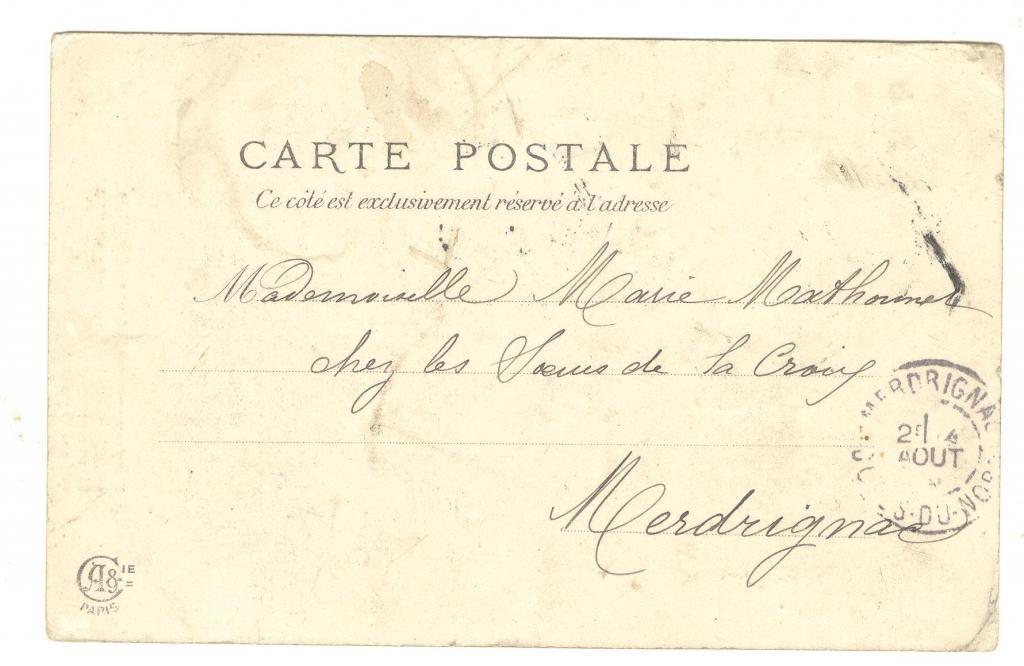 CARTE POSTALE
Ce côté est exclusivement réservé à l'adresse
Mademoiselle Marie Mathonnet
chez les Sœurs de la Croix
Merdrignac
MERDRIGNAC
AOUT
DU-NORD
A & CIE
PARIS